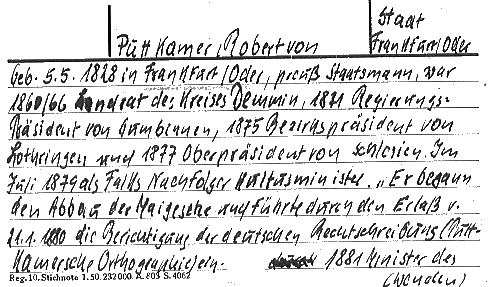 Stadt
Puttkamer, Robert von Frankfurt/Oder
geb. 5.5. 1828 in Frankfurt/Oder, preuß Staatsmann, war
1860/66 Landrat des Kreises Demmin, 1871 Regierungs-
Präsident von Gumbinnen, 1875 Bezirkspräsident von
Lothringen und 1877 Oberpräsident von Schlesien. Im
Juli 1879 als Falks Nachfolger Kultusminister. „Er begann
den Abbau der Maigesetze und führte durch den Erlaß v.
21.1. 1880 die Berichtigung der deutschen Rechtschreibung (Putt-
Kamersche Orthographie) ein. 1881 Minister des
(Wenden)
Reg. 10. Stichnote 1. 50. 232 000. A. 803 S. 4062